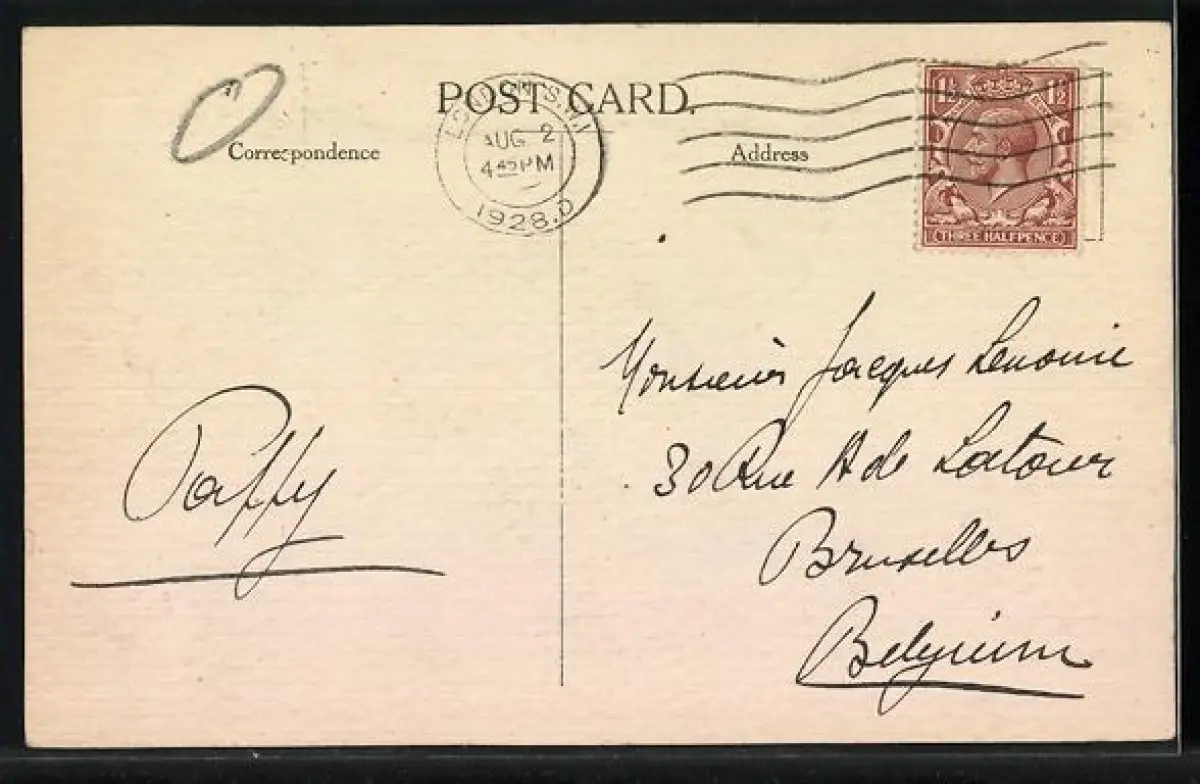 POST CARD.
Correspondence
Address
LONDON S.W.1
AUG 2
4 45 PM
1928.D
1½ 1½
THREE HALFPENCE
Monsieur Jacques Lenoire
30 Rue A de Latour
Bruxelles
Belgium
Paffy